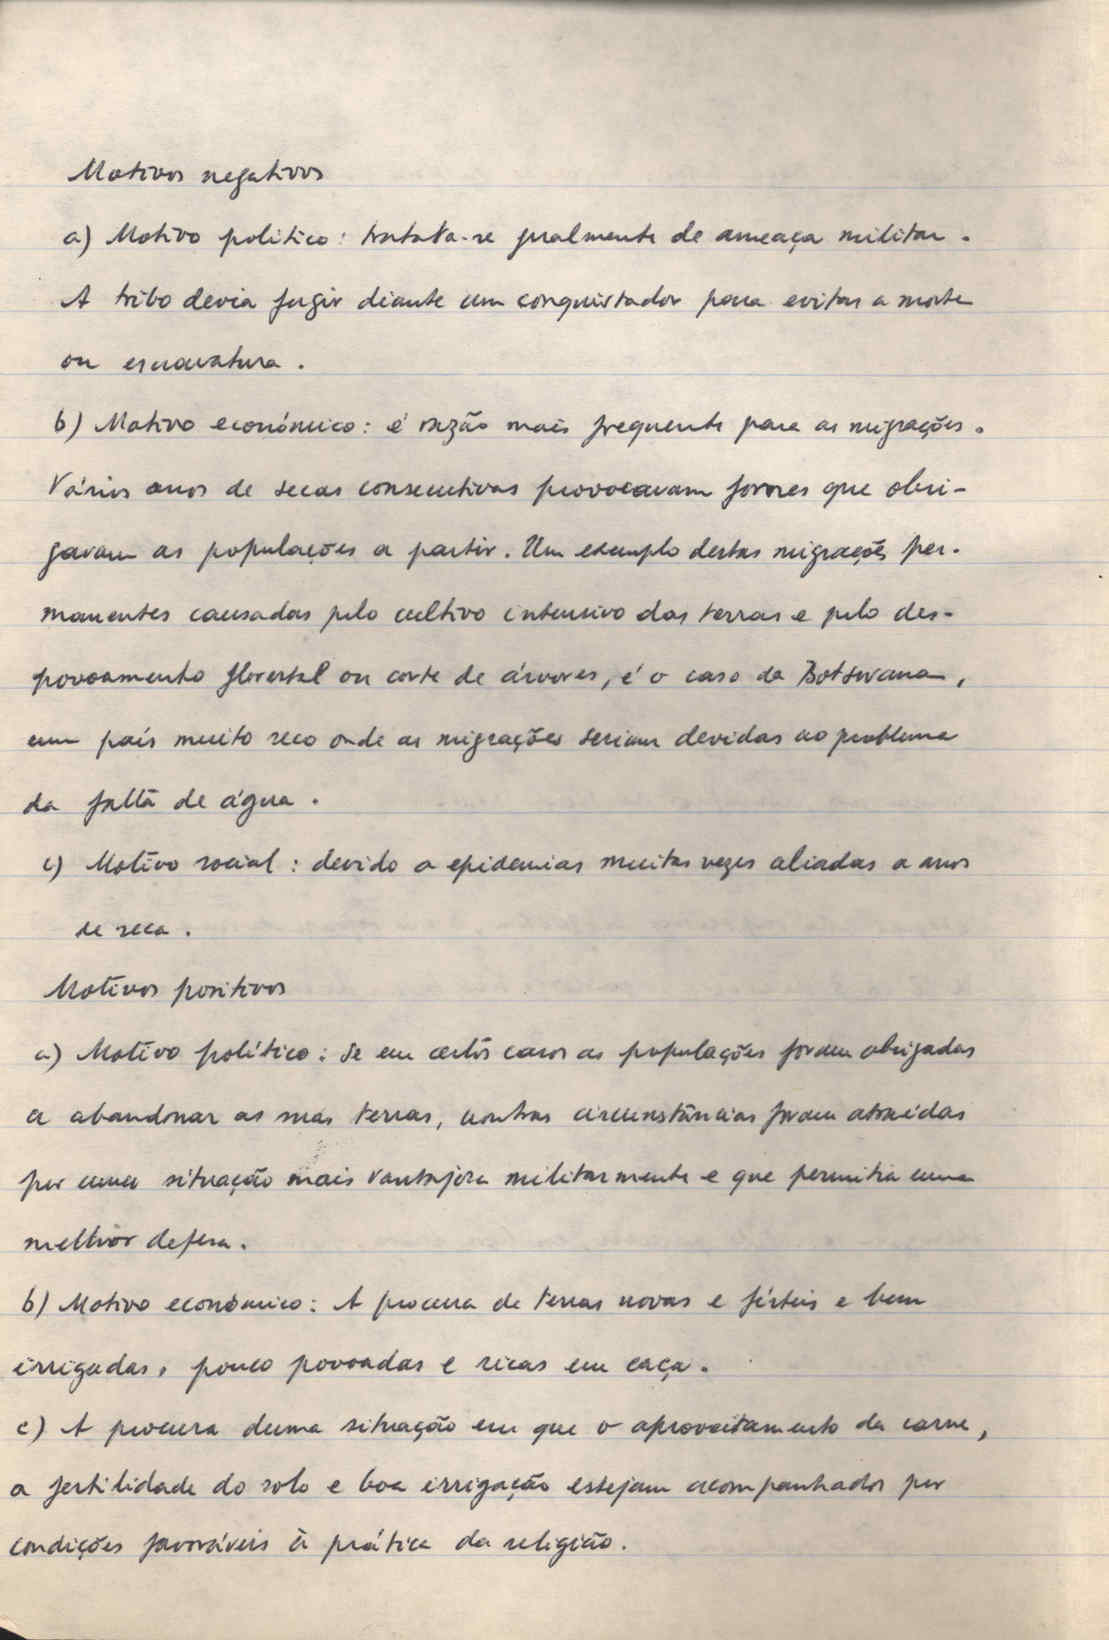 Motivos negativos
a) Motivo politico: tratata-se gralmente de ameaça militar.
A tribo devia fugir diante um conquistador para evitar a morte
ou escravatura.
b) Motivo económico: é razão mais frequente para as migrações.
Vários anos de secas consecutivas provocavam fomes que obri-
gavam as populações a partir. Um exemplo destas migrações per-
manentes causadas pelo cultivo intensivo das terras e pelo des-
povoamento florestal ou corte de árvores, é o caso da Botswana,
um país muito seco onde as migrações seriam devidas ao problema
da falta de água.
c) Motivo social: devido a epidemias muitas vezes aliadas a anos
de seca.
Motivos positivos
a) Motivo político: Se em certos casos as populações foram obrigadas
a abandonar as suas terras, noutras circunstâncias foram atraídas
por uma situação mais vantajosa militarmente e que permitia uma
melhor defesa.
b) Motivo económico: A procura de terras novas e férteis e bem
irrigadas, pouco povoadas e ricas em caça.
c) A procura duma situação em que o aproveitamento da carne,
a fertilidade do solo e boa irrigação estejam acompanhados por
condições favoráveis à prática da religião.